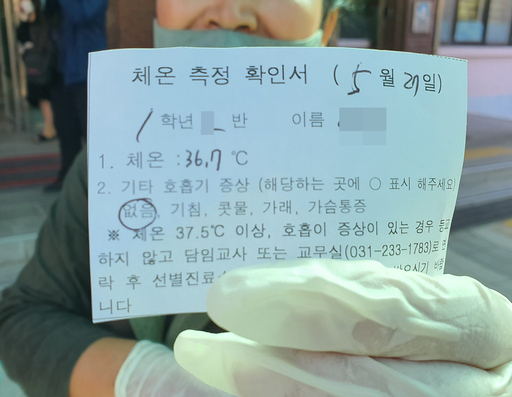 체온 측정 확인서 ( 5 월 27일)
1 학년 반 이름
1. 체온 : 36.7 ℃
2. 기타 호흡기 증상 (해당하는 곳에 ○ 표시 해주세요
없음, 기침, 콧물, 가래, 가슴통증
※ 체온 37.5℃ 이상, 호흡이 증상이 있는 경우 등교
하지 않고 담임교사 또는 교무실(031-233-1783)로
락 후 선별진료
니다